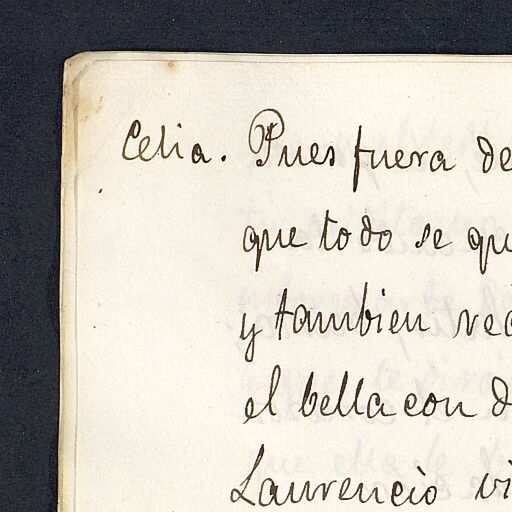 Celia. Pues fuera de
que todo se qu
y tambien vec
el bella con d
Laurencio vi